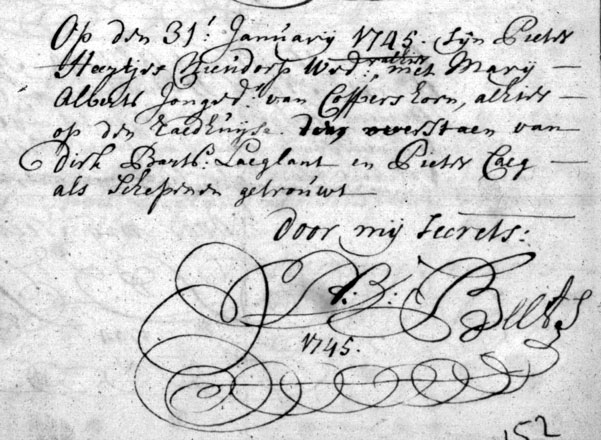 Op den 31: January 1745. sijn Pieter
Heytjes Wed: met Mary
Alberts Jonged: van Coppershorn, alhier
op den Raedhuijse door overstaen van
Dirk Barts: Laeglant en Pieter Caeg
als Schepenen getrouwt
Door mij Secrets:
P:B: Beets
1745.
152